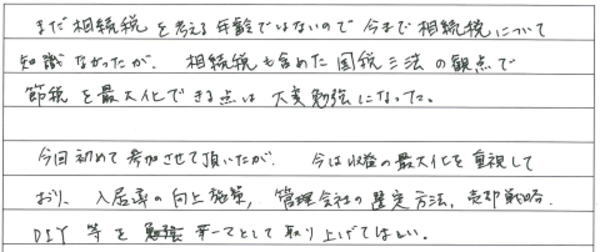 まだ相続税を考える年齢ではないので今まで相続税について
知識なかったが、相続税も含めた国税三法の観点で
節税を最大化できる点は大変勉強になった。
今回初めて参加させて頂いたが、今は収益の最大化を重視して
おり、入居率の向上施策、管理会社の選定方法、売却戦略、
DIY等をテーマとして取り上げてほしい。